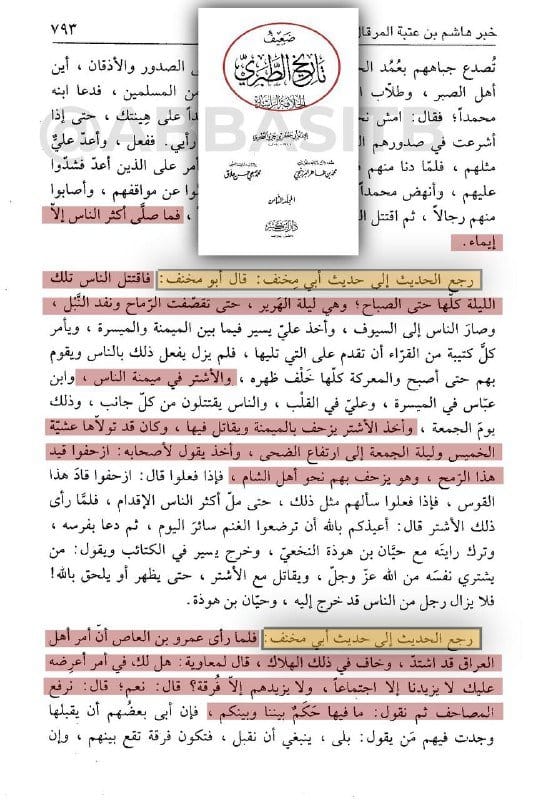 خبر هاشم بن عتبة المرقال
٧٩٣
ضعيف
تاريخ الطبري
المجلد الثامن
تُصدع جباههم بعُمُد
الصدور والأذقان ، أين
أهل الصبر ، وطلّاب
من المسلمين ، فدعا ابنه
محمداً؛ فقال: امش نح
على هِينتك ، حتى إذا
أشرعت في صدورهم
رأيي. ففعل ، وأعدّ عليّ
مثلهم ، فلمّا دنا منهم
على الذين أعدّ فشدّوا
عليهم ، وأنهض محمداً
عن مواقفهم ، وأصابوا
منهم رجالاً ، ثم اقتتل
فما صلَّى أكثر الناس إلّا
إيماء.
رجع الحديث إلى حديث أبي مِخنف: قال أبو مخنف: فاقتتل الناس تلك
الليلة كلّها حتى الصباح؛ وهي ليلة الهَرير ، حتى تقصّفت الرّماح ونفد النَّبْل ،
وصارَ الناس إلى السيوف ، وأخذ عليّ يسير فيما بين الميمنة والميسرة ، ويأمر
كلّ كتيبة من القرّاء أن تقدم على التي تليها ، فلم يزل يفعل ذلك بالناس ويقوم
بهم حتى أصبح والمعركة كلّها خَلْف ظهره ، والأشتر في ميمنة الناس ، وابن
عبّاس في الميسرة ، وعليّ في القلْب ، والناس يقتتلون من كلّ جانب ، وذلك
يومَ الجمعة ، وأخذ الأشتر يزحف بالميمنة ويقاتل فيها ، وكان قد تولّاها عشيّة
الخميس وليلة الجمعة إلى ارتفاع الضحى ، وأخذ يقول لأصحابه: ازحفوا قيد
هذا الرّمح ، وهو يزحف بهم نحو أهل الشام ، فإذا فعلوا قال: ازحفوا قادَ هذا
القوس ، فإذا فعلوا سألهم مثل ذلك ، حتى ملّ أكثر الناس الإقدام ، فلمَّا رأى
ذلك الأشتر قال: أعيذكم بالله أن ترضعوا الغنم سائرَ اليوم ، ثم دعا بفرسه ،
وترك رايتَه مع حيَّان بن هوذة النخَعيّ ، وخرج يسير في الكتائب ويقول: من
يشتري نفسَه من الله عزّ وجلّ ، ويقاتل مع الأشتر ، حتى يظهر أو يلحق بالله!
فلا يزال رجل من الناس قد خرج إليه ، وحيّان بن هوذة.
رجع الحديث إلى حديث أبي مخنف: فلما رأى عمرو بن العاص أنّ أمر أهل
العراق قد اشتدّ ، وخاف في ذلك الهلاك ، قال لمعاوية: هل لك في أمر أعرضه
عليك لا يزيدنا إلا اجتماعاً ، ولا يزيدهم إلاّ فُرقة؟ قال: نعم؛ قال: نرفع
المصاحف ثم نقول: ما فيها حَكَمٌ بيننا وبينكم ، فإن أبى بعضُهم أن يقبلها
وجدت فيهم مَن يقول: بلى ، ينبغي أن نقبل ، فتكون فرقة تقع بينهم ، وإن